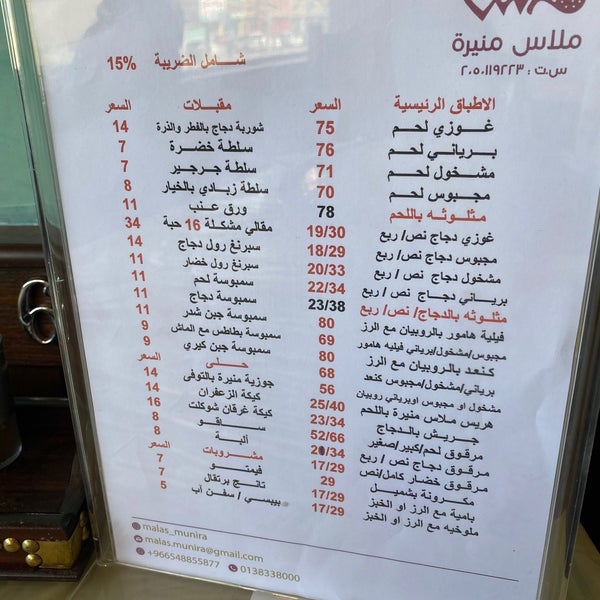 ملاس منيرة
س.ت : ٢٠٥٠١١٩٢٢٣
شامل الضريبة 15%
الاطباق الرئيسية السعر
غوزي لحم 75
برياني لحم 76
مشخول لحم 71
مجبوس لحم 70
مثلوثه باللحم 78
غوزي دجاج نص/ ربع 19/30
مجبوس دجاج نص/ ربع 18/29
مشخول دجاج نص/ ربع 20/33
برياني دجاج نص/ ربع 22/34
مثلوثه بالدجاج/ نص/ ربع 23/38
فيلية هامور بالروبيان مع الرز 80
مجبوس/مشخول/برياني فيليه هامور 69
كنعد بالروبيان مع الرز 80
برياني/مشخول/مجبوس كنعد 68
مشخول او مجبوس اوبرياني روبيان 56
هريس ملاس منيرة باللحم 25/40
جريش بالدجاج 23/34
مرقوق لحم/كبير/صغير 52/66
مرقوق دجاج نص / ربع /34
مرقوق خضار كامل/نص 17/29
مكرونة بشميل 29
بامية مع الرز او الخبز 17/29
ملوخيه مع الرز او الخبز 17/29
مقبلات السعر
شوربة دجاج بالفطر والذرة 14
سلطة خضرة 7
سلطة جرجير 7
سلطة زبادي بالخيار 8
ورق عنب 11
مقالي مشكلة 16 حبة 34
سبرنغ رول دجاج 14
سبرنغ رول خضار 11
سمبوسة لحم 11
سمبوسة دجاج 11
سمبوسة جبن شدر 11
سمبوسة بطاطس مع الماش 9
سمبوسة جبن كيري 9
حلى السعر
جوزية منيرة بالتوفي 14
كيكة الزعفران 14
كيكة غرقان شوكلت 16
ساقو 8
ألبة 8
مشروبات السعر
فيمتو 7
تانج برتقال 7
بيبسي / سفن أب 5
malas_munira
malas.munira@gmail.com
+966548855877 0138338000